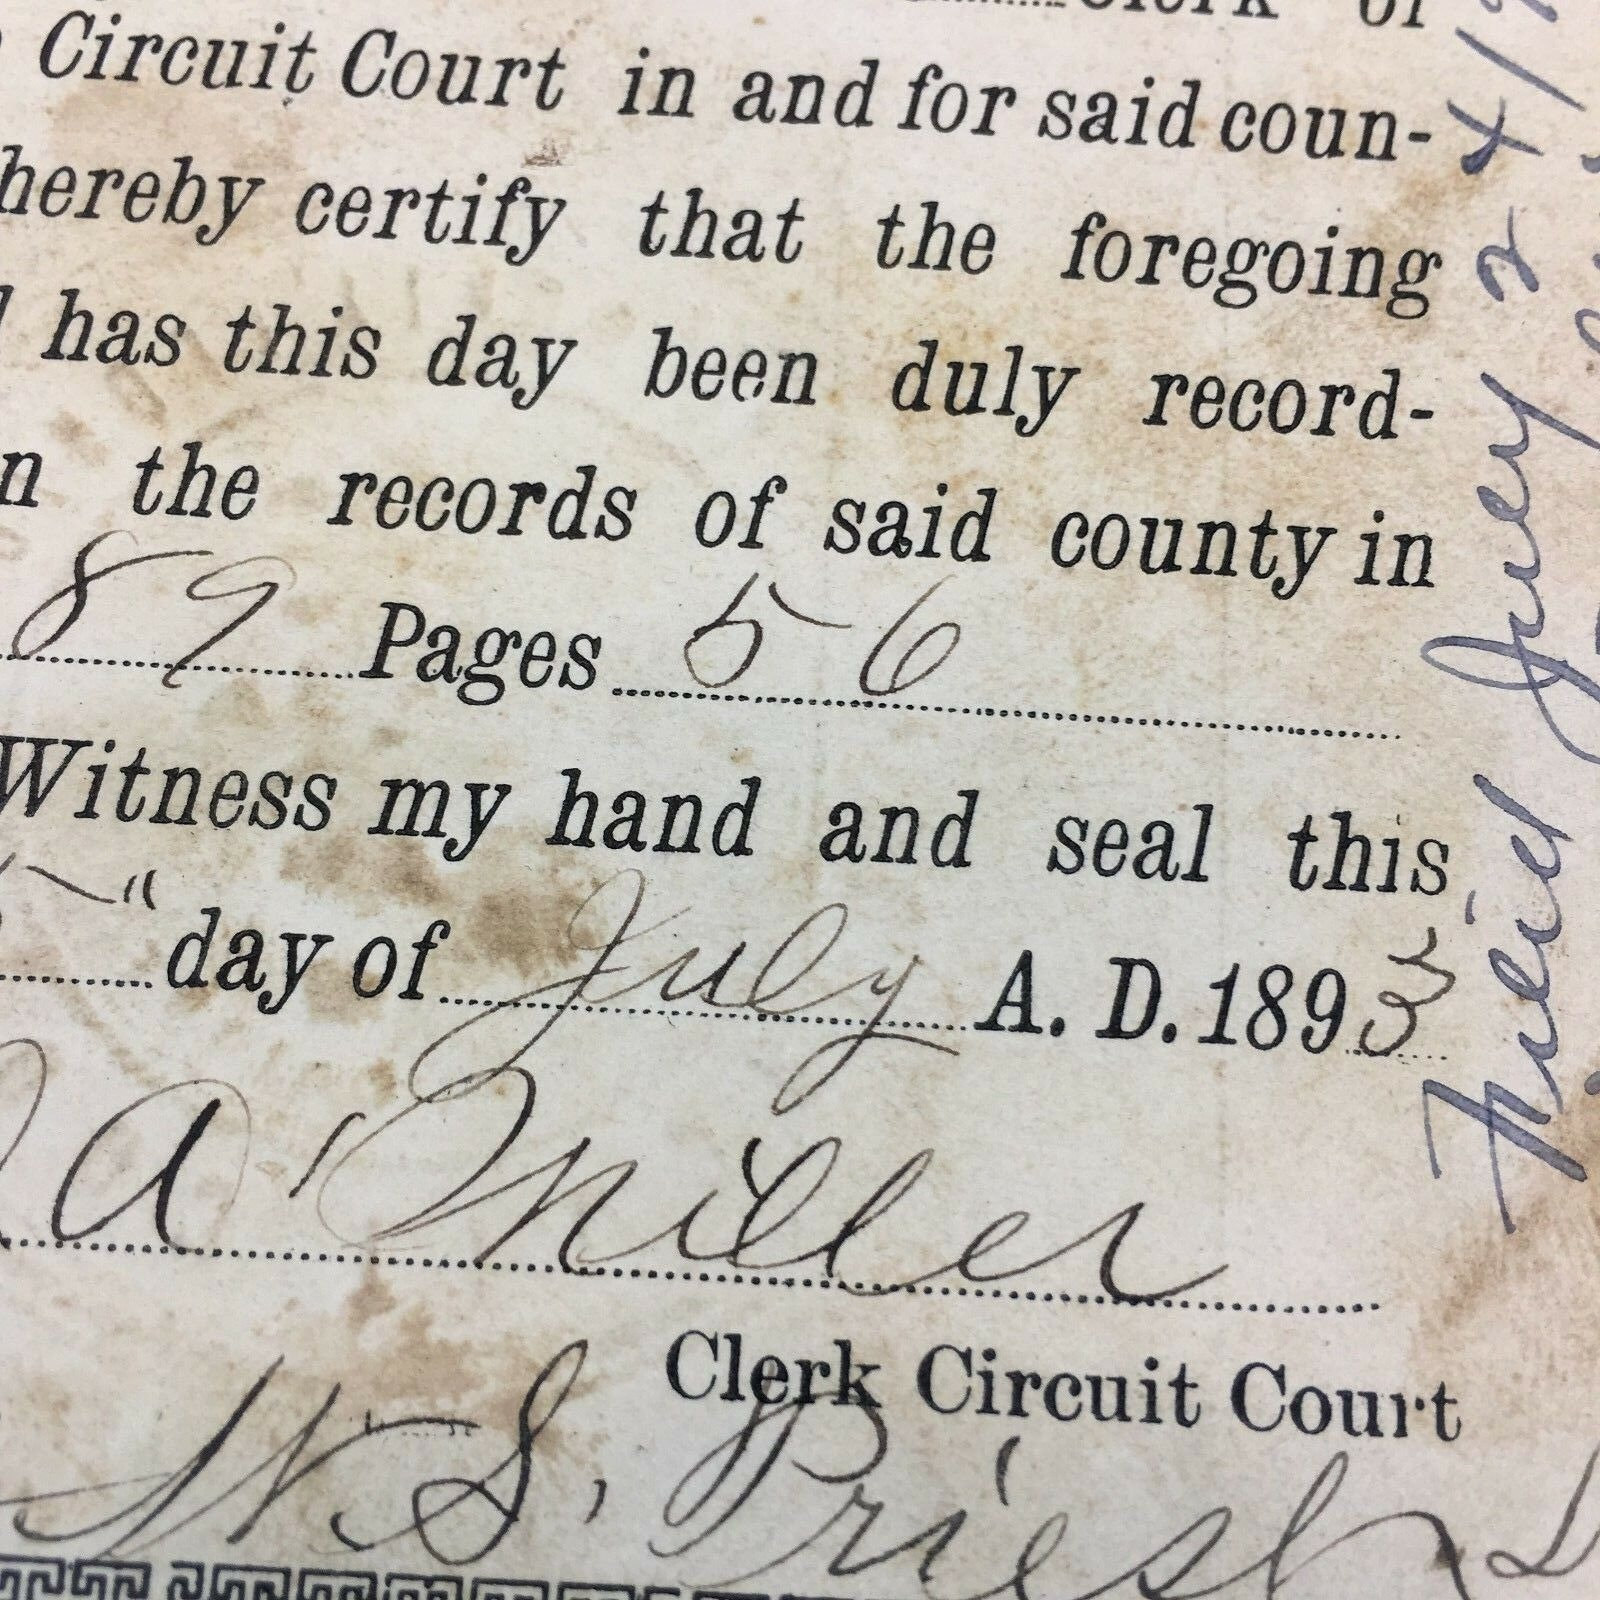 Clerk of
Circuit Court in and for said coun-
hereby certify that the foregoing
has this day been duly record-
n the records of said county in
89 Pages 56
Witness my hand and seal this
5" day of July A. D. 1893
A Miller
Clerk Circuit Court
W. S. Priest
Filed July 24